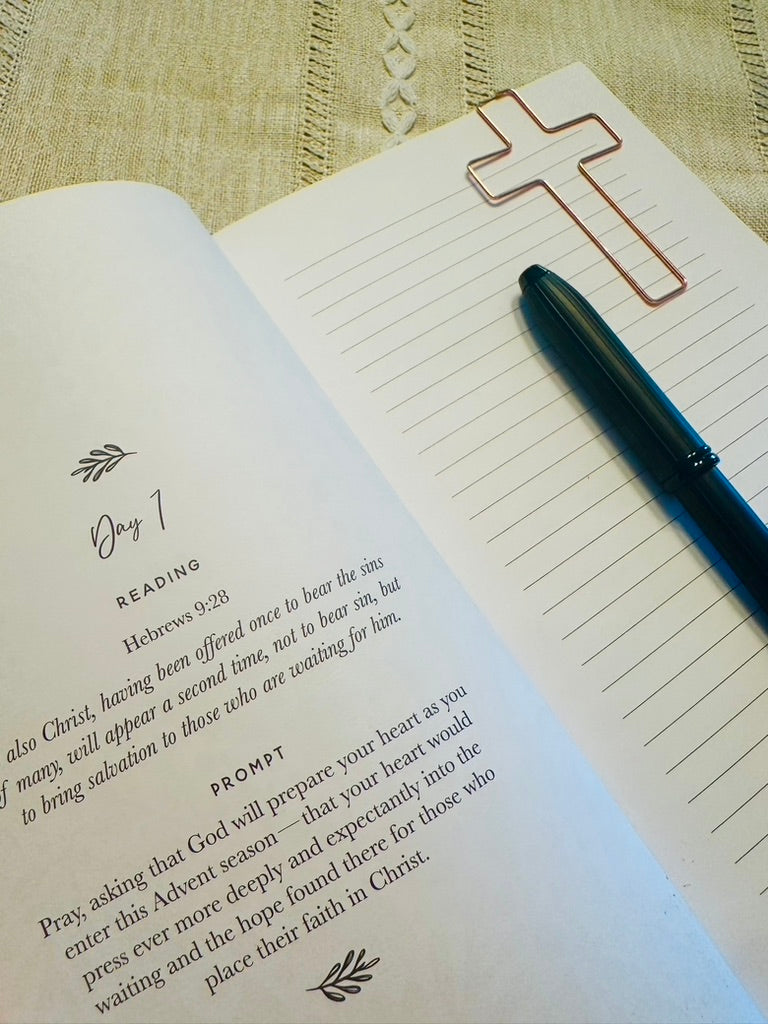 Day 1
READING
Hebrews 9:28
also Christ, having been offered once to bear the sins
of many, will appear a second time, not to bear sin, but
to bring salvation to those who are waiting for him.
PROMPT
Pray, asking that God will prepare your heart as you
enter this Advent season—that your heart would
press ever more deeply and expectantly into the
waiting and the hope found there for those who
place their faith in Christ.